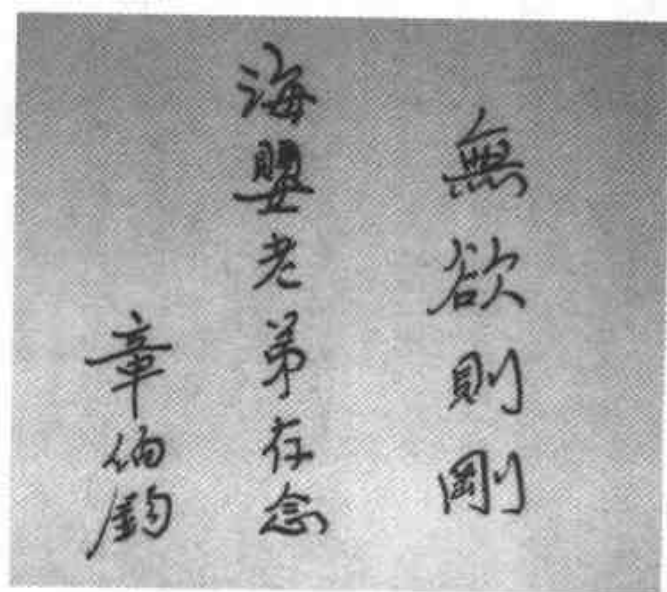 無欲則剛
海嬰老弟存念
章伯鈞